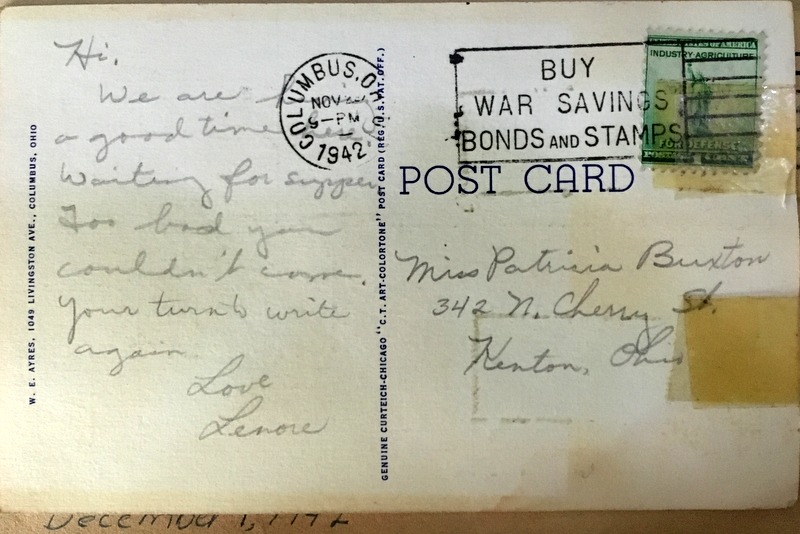 Hi.
We are
a good time
Waiting for supper
Too bad you
couldn't come.
Your turn to write
again
Love
Lenore
W. E. AYRES, 1049 LIVINGSTON AVE., COLUMBUS, OHIO
COLUMBUS, O
NOV
9-PM
1942
GENUINE CURTEICH-CHICAGO "C.T. ART-COLORTONE" POST CARD (REG. U.S. PAT. OFF.)
BUY
WAR SAVINGS
BONDS AND STAMPS
STATES OF AMERICA
INDUSTRY-AGRICULTURE
FOR DEFENSE
POST CARD
Miss Patricia Buxton
342 N. Cherry St.
Kenton, Ohio
December 1, 1942